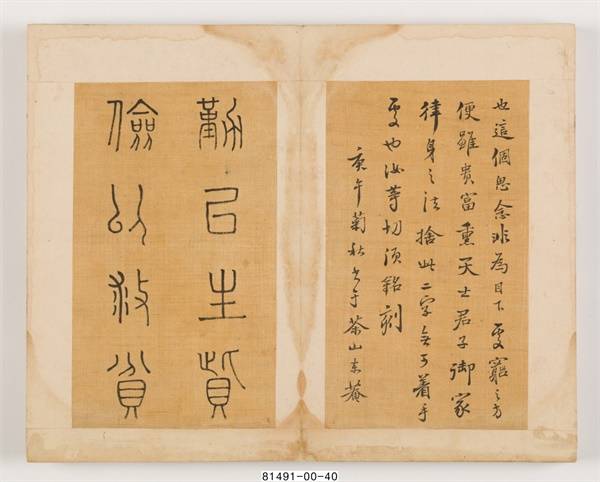 也這個思念非為目下處窮之方
便雖貴富熏天士君子御家
律身之法捨此二字無可着手
處也汝等切須銘刻
庚午菊秋書于茶山東菴
勤㠯生貲
儉以救貧
81491-00-40